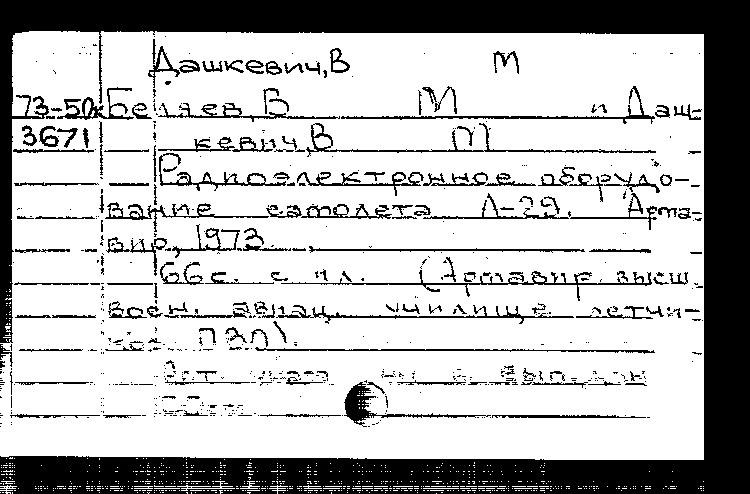 Дашкевич,В М
73-50к Беляев,В М и Даш-
3671 кевич,В М
Радиоэлектронное оборудо-
вание самолета Л-29. Арма-
вир, 1973.
66с. с ил. (Армавир. высш.
воен. авиац. училище летчи-
ков ПВО).